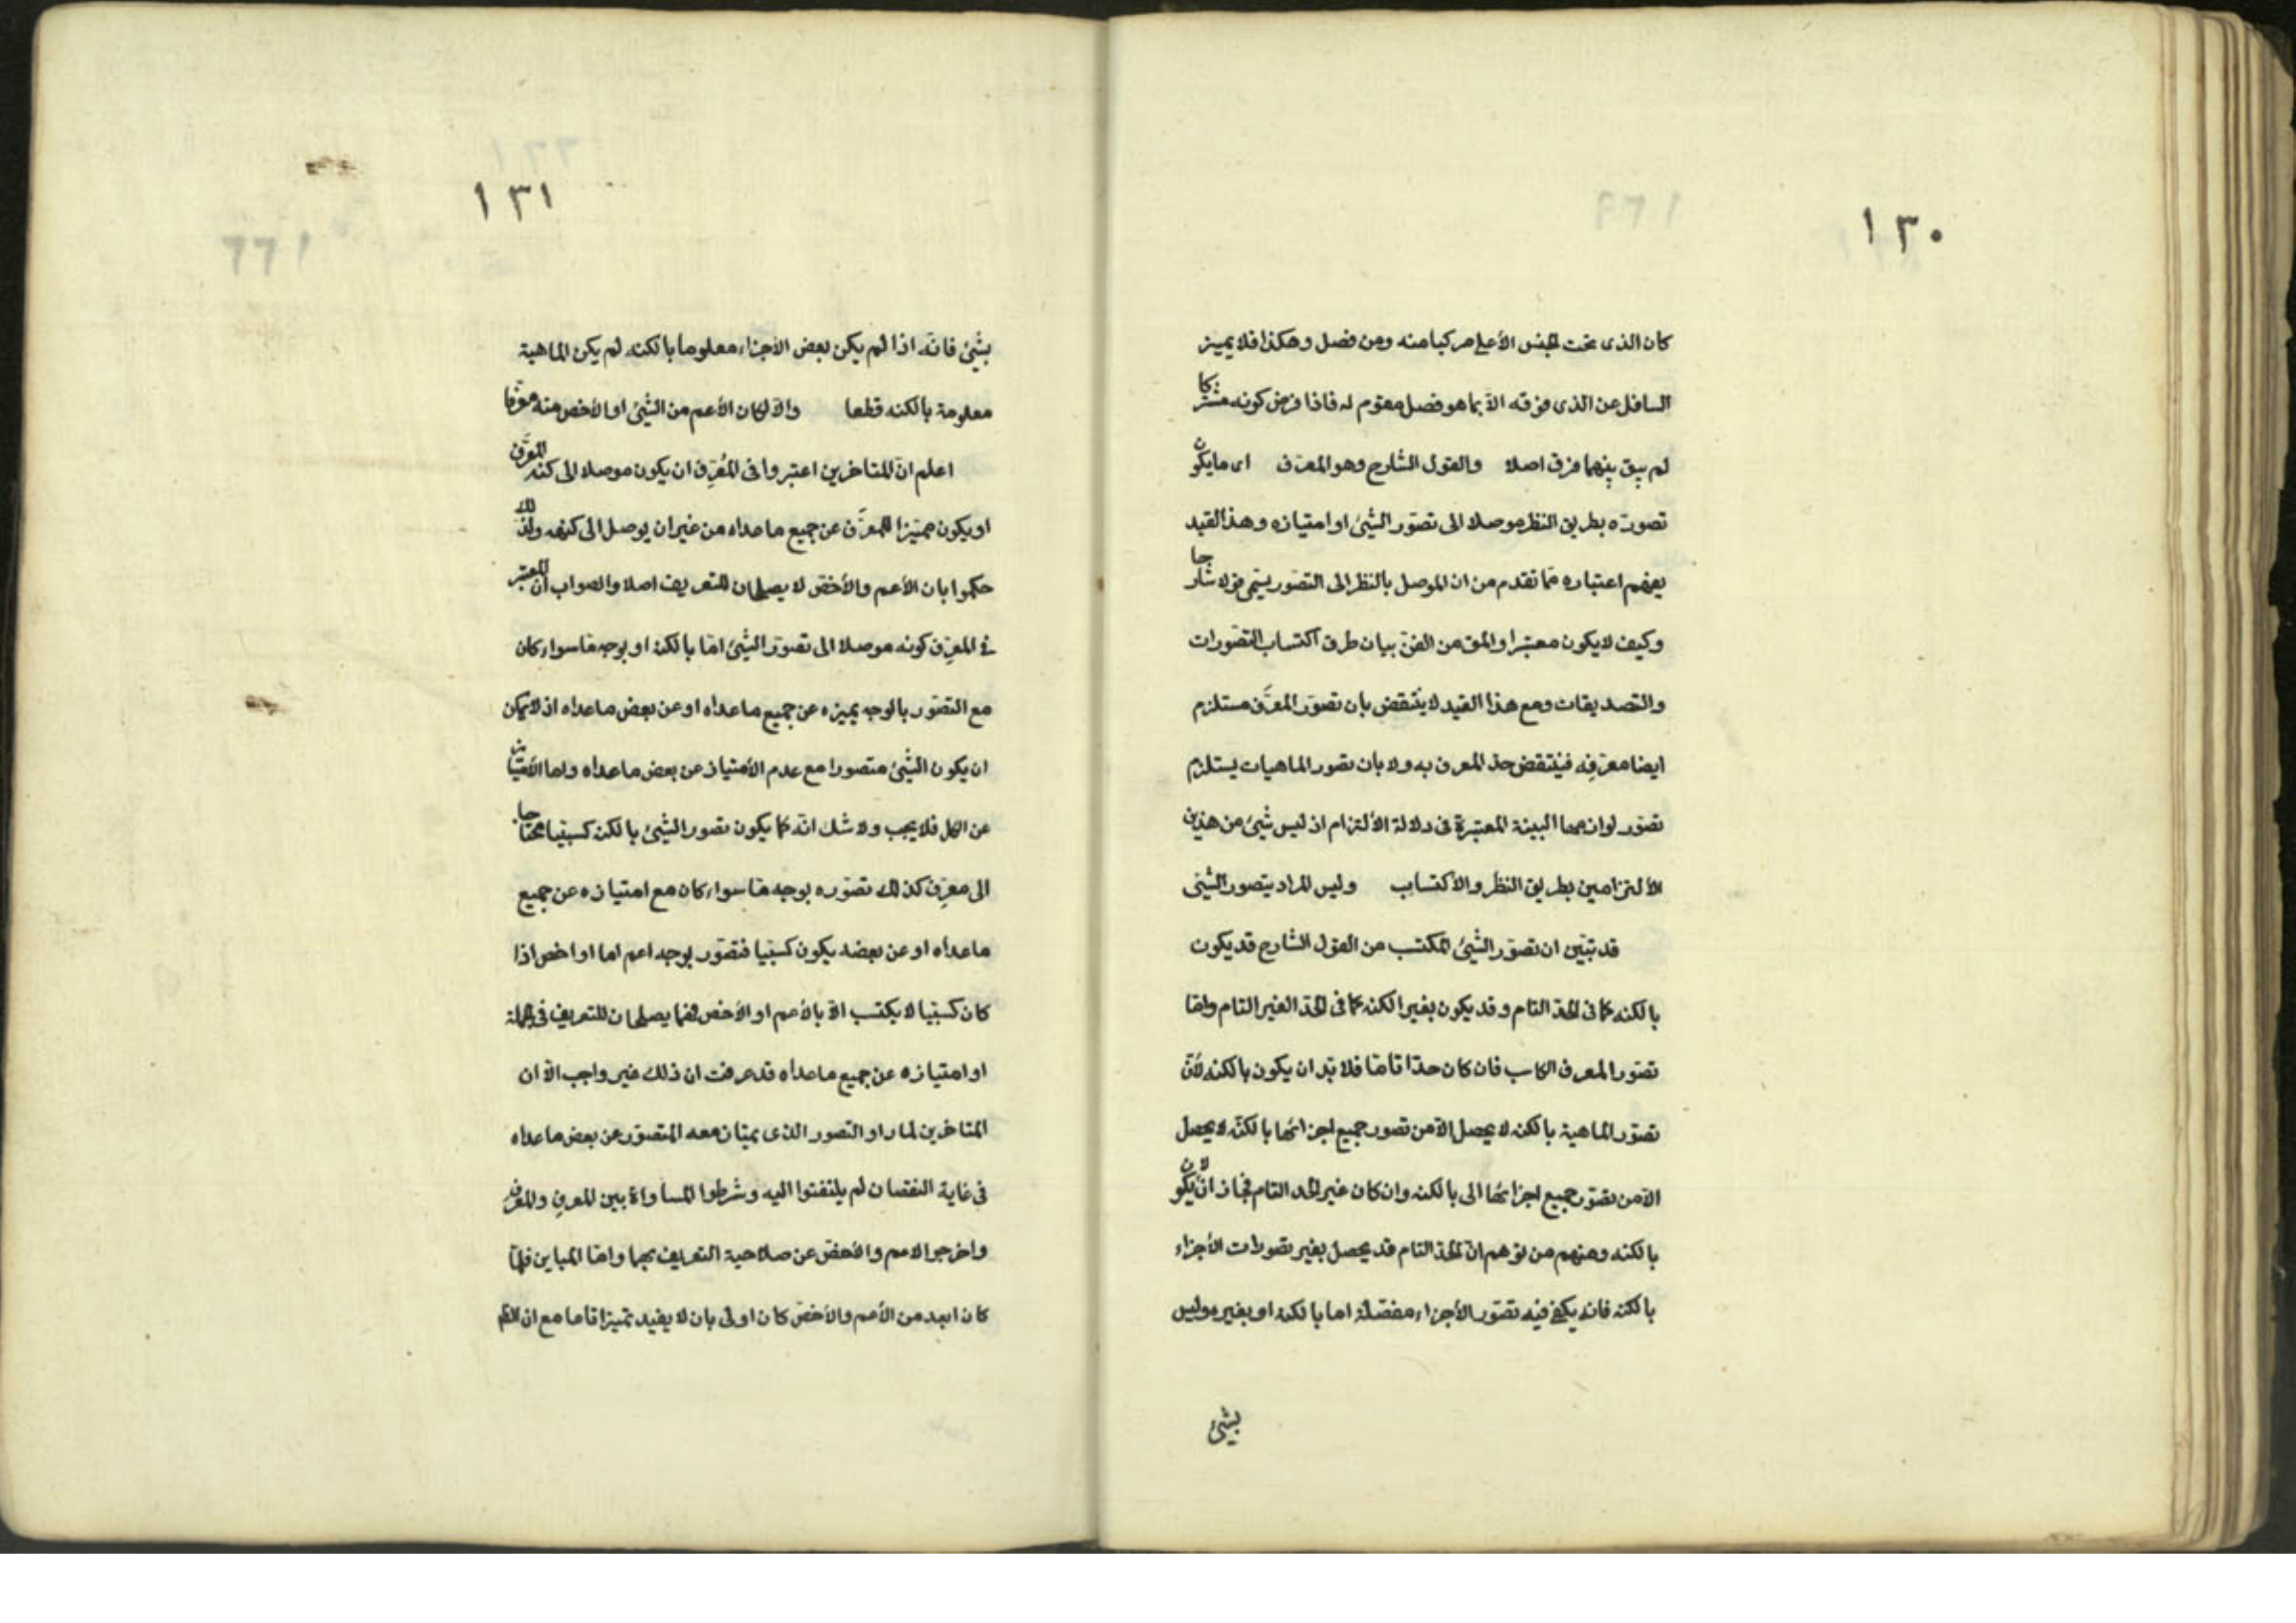 ١٣٠
كان الذى تحت الجنس الأعلى مركبا منه ومن فصل وهكذا فلا يميز
السافل عن الذى فوقه الاّ بما هو فصل مقوم له فاذا فرض كونه مشتركا
لم يبق بينهما فرق اصلا والقول الشارح وهو المعرّف اى ما يكون
تصورّه بطريق النظر موصلا الى تصوّر الشئ او امتيازه وهذا القيد
يفهم اعتباره ممّا تقدم من ان الموصل بالنظر الى التصوّر يسمّى قولا شارحا
وكيف لا يكون معتبرا والمق من الفنّ بيان طرق اكتساب التصّورات
والتصديقات ومع هذا القيد لا ينتقض بان تصوّر المعرَّف مستلزم
ايضا معرّفِه فينتقض حدّ المعرف به ولا بان تصور الماهيات يستلزم
تصوّر لوازمها البينة المعتبرة فى دلالة الألتزام اذ ليس شئ من هذين
الألتزامين بطريق النظر والأكتساب وليس المراد بتصور الشئ
قد تبيّن ان تصوّر الشئ المكتسب من القول الشارح قد يكون
بالكنه كما فى الحدّ التام وقد يكون بغير الكنه كما فى الحدّ الغير التام وامّا
تصوّر المعرف الكاسب فان كان حدّا تامّا فلا بدّ ان يكون بالكنه لأنّ
تصوّر الماهية بالكنه لا يحصل الاّ من تصور جميع اجزائها بالكنه لا يحصل
الاّ من تصوّر جميع اجزائها الى بالكنه وان كان غير الحد التام فجاز ان لا يكون
بالكنه ومنهم من توّهم انّ الحدّ التام قد يحصل بغير تصوّرات الأجزاء
بالكنه فانه يكفى فيه تصوّر الأجزاء مفصّلة اما بالكنه او بغيره وليس
بشئ
١٣١
بشئ فانّه اذا لم يكن بعض الأجزاء معلوما بالكنه لم يكن الماهية
معلومة بالكنه قطعا والّا لكان الأعم من الشئ او الأخص منه معرّفا
اعلم انّ المتاخرين اعتبروا فى المُعرِّف ان يكون موصلا الى كنه المعرَّف
او يكون مميّزا للمعرَّف عن جميع ما عداه من غير ان يوصل الى كنهه ولذلك
حكموا بان الأعم والأخصّ لا يصلحان للتعريف اصلا والصواب انّ المعتبر
فى المعرِّف كونه موصلا الى تصوّر الشئ امّا بالكنه او بوجه مّا سواء كان
مع التصّور بالوجه يميزه عن جميع ما عداه او عن بعض ما عداه اذ لا يمكن
ان يكون الشئ متصورا مع عدم الأمتياز عن بعض ما عداه واما الأمتياز
عن الكل فلا يجب ولا شك انّه كما يكون تصور الشئ بالكنه كسبيّا محتاجا
الى معرِّف كذلك تصوّره بوجه مّا سواء كان مع امتيازه عن جميع
ما عداه او عن بعضه يكون كسبيّا فتصوّر بوجه اعم اما او اخص اذا
كان كسبيّا لا يكتسب الاّ بالأعم او الأخص فهما يصلحان للتعريف فى الجملة
او امتيازه عن جميع ما عداه قد عرفت ان ذلك غير واجب الاّ ان
المتاخرين لما راو التصور الذى يمتاز معه المتصوّر عن بعض ما عداه
فى غاية النقصان لم يلتفتوا اليه وشرطوا المساواة بين المعرِف والمعرَف
واخرجوا الاعم والأخصّ عن صلاحية التعريف بهما وامّا المباين فلمّا
كان ابعد من الأعم والأخصّ كان اولى بان لا يفيد تميزا تاما مع ان